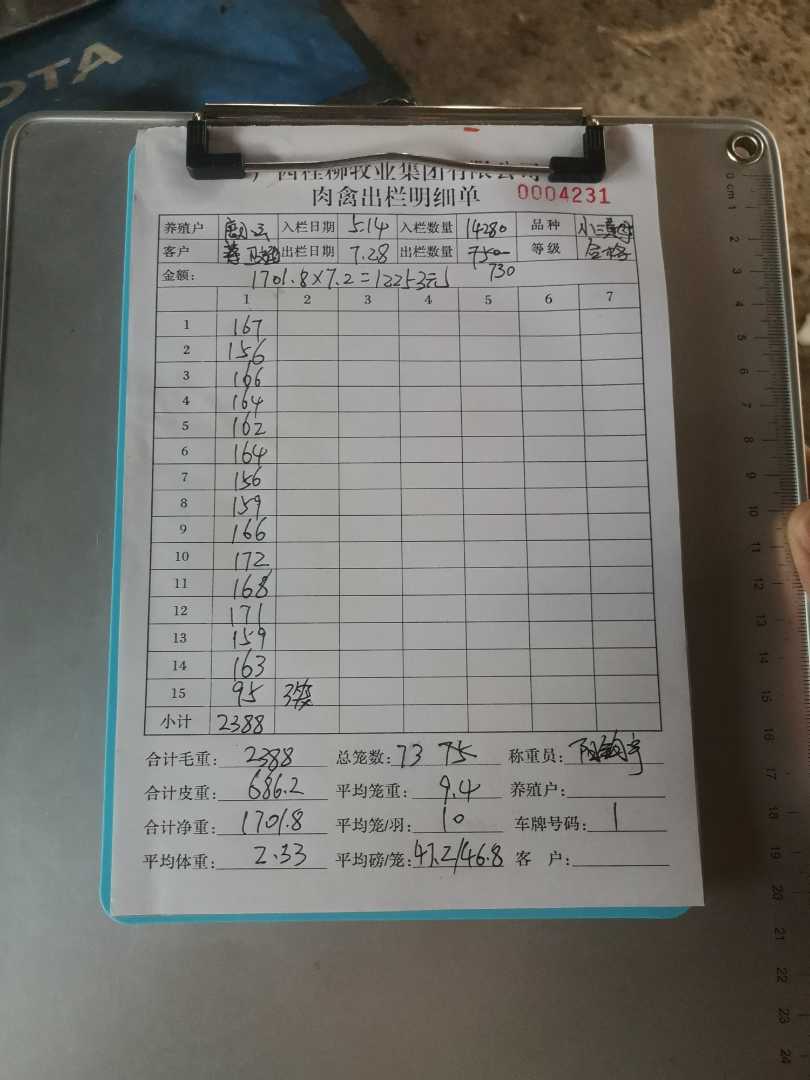 OTA
西桂柳牧业集团有限公司
肉禽出栏明细单 0004231
养殖户 入栏日期 5.14 入栏数量 14280 品种
客户 出栏日期 7.28 出栏数量 750 等级 合格
金额: 1701.8×7.2=12253元 730
1 2 3 4 5 6 7
1 167
2 156
3 166
4 164
5 162
6 164
7 156
8 159
9 166
10 172
11 168
12 171
13 159
14 163
15 95 3笼
小计 2388
合计毛重: 2388 总笼数: 73 75 称重员:
合计皮重: 686.2 平均笼重: 9.4 养殖户:
合计净重: 1701.8 平均笼/羽: 10 车牌号码: 1
平均体重: 2.33 平均磅/笼: 47.2/46.8 客 户:
0cm 1 2 3 4 5 6 7 8 9 10 11 12 13 14 15 16 17 18 19 20 21 22 23 24